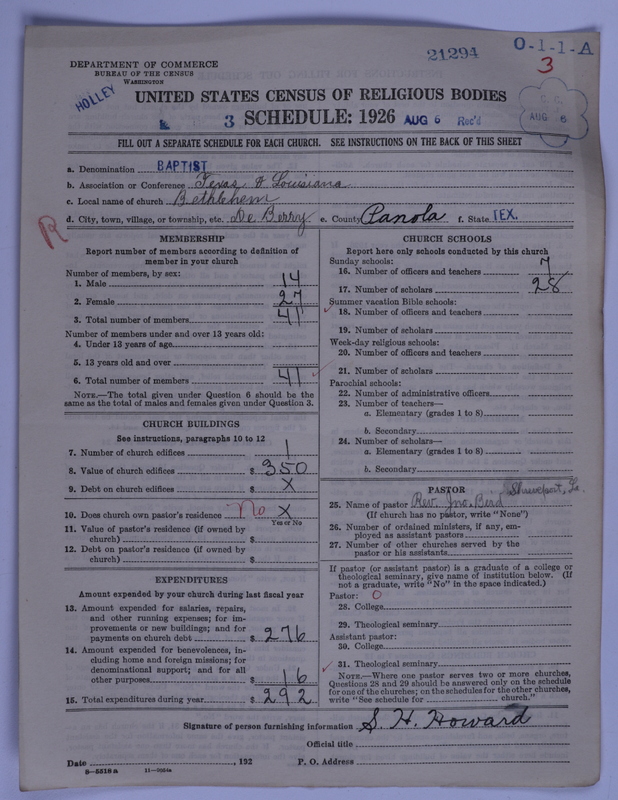 21294
O-1-1-A
3
DEPARTMENT OF COMMERCE
BUREAU OF THE CENSUS
WASHINGTON
HOLLEY
UNITED STATES CENSUS OF RELIGIOUS BODIES
3 SCHEDULE: 1926 AUG 6 Rec'd
AUG 6
FILL OUT A SEPARATE SCHEDULE FOR EACH CHURCH. SEE INSTRUCTIONS ON THE BACK OF THIS SHEET
a. Denomination BAPTIST
b. Association or Conference Texas & Louisiana
c. Local name of church Bethlehem
d. City, town, village, or township, etc. De Berry e. County Panola f. State TEX.
R
MEMBERSHIP
Report number of members according to definition of
member in your church
Number of members, by sex:
1. Male 14
2. Female 27
3. Total number of members 41
Number of members under and over 13 years old:
4. Under 13 years of age
5. 13 years old and over
6. Total number of members 41
NOTE.—The total given under Question 6 should be the
same as the total of males and females given under Question 3.
CHURCH BUILDINGS
See instructions, paragraphs 10 to 12
7. Number of church edifices 1
8. Value of church edifices $ 350
9. Debt on church edifices $ X
10. Does church own pastor's residence No X
Yes or No
11. Value of pastor's residence (if owned by
church) $
12. Debt on pastor's residence (if owned by
church) $
EXPENDITURES
Amount expended by your church during last fiscal year
13. Amount expended for salaries, repairs,
and other running expenses; for im-
provements or new buildings; and for
payments on church debt $ 276
14. Amount expended for benevolences, in-
cluding home and foreign missions; for
denominational support; and for all
other purposes $ 16
15. Total expenditures during year $ 292
CHURCH SCHOOLS
Report here only schools conducted by this church
Sunday schools:
16. Number of officers and teachers 7
17. Number of scholars 28
Summer vacation Bible schools:
18. Number of officers and teachers
19. Number of scholars
Week-day religious schools:
20. Number of officers and teachers
21. Number of scholars
Parochial schools:
22. Number of administrative officers
23. Number of teachers—
a. Elementary (grades 1 to 8)
b. Secondary
24. Number of scholars—
a. Elementary (grades 1 to 8)
b. Secondary
PASTOR Shreveport, La.
25. Name of pastor Rev. Jno. Bird
(If church has no pastor, write "None")
26. Number of ordained ministers, if any, em-
ployed as assistant pastors
27. Number of other churches served by the
pastor or his assistants
If pastor (or assistant pastor) is a graduate of a college or
theological seminary, give name of institution below. (If
not a graduate, write "No" in the space indicated.)
Pastor: O
28. College
29. Theological seminary
Assistant pastor:
30. College
31. Theological seminary
NOTE.—Where one pastor serves two or more churches,
Questions 28 and 29 should be answered only on the schedule
for one of the churches; on the schedules for the other churches,
write "See schedule for church."
Signature of person furnishing information S. H. Howard
Official title
Date , 192 P. O. Address
8-5518a 11-9024a